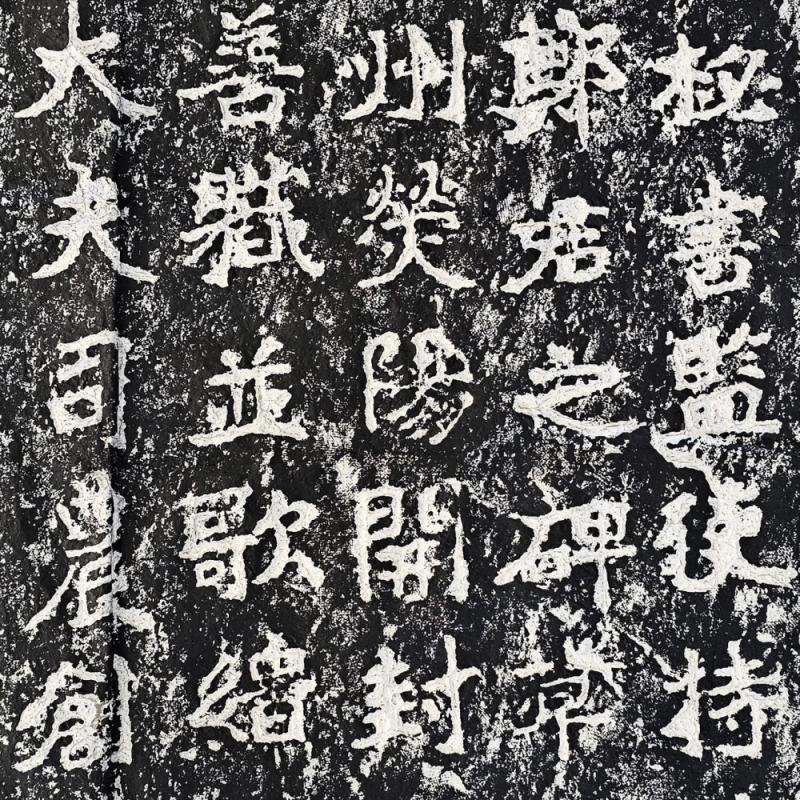 秘書監使持
鄭君之碑草
州熒陽開封
善職並歌緇
大夫司農創